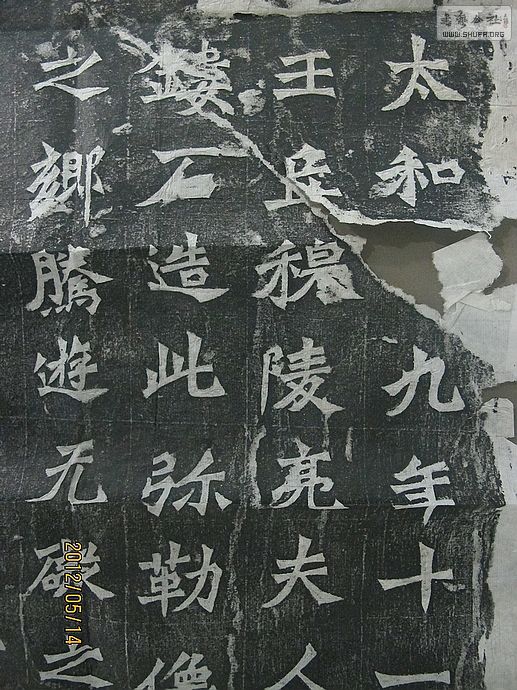 太和九年十一
王丘穆陵亮夫人
鏤石造此弥勒像
之鄉騰遊无礙之
WWW.SHUFA.ORG
2012/05/14